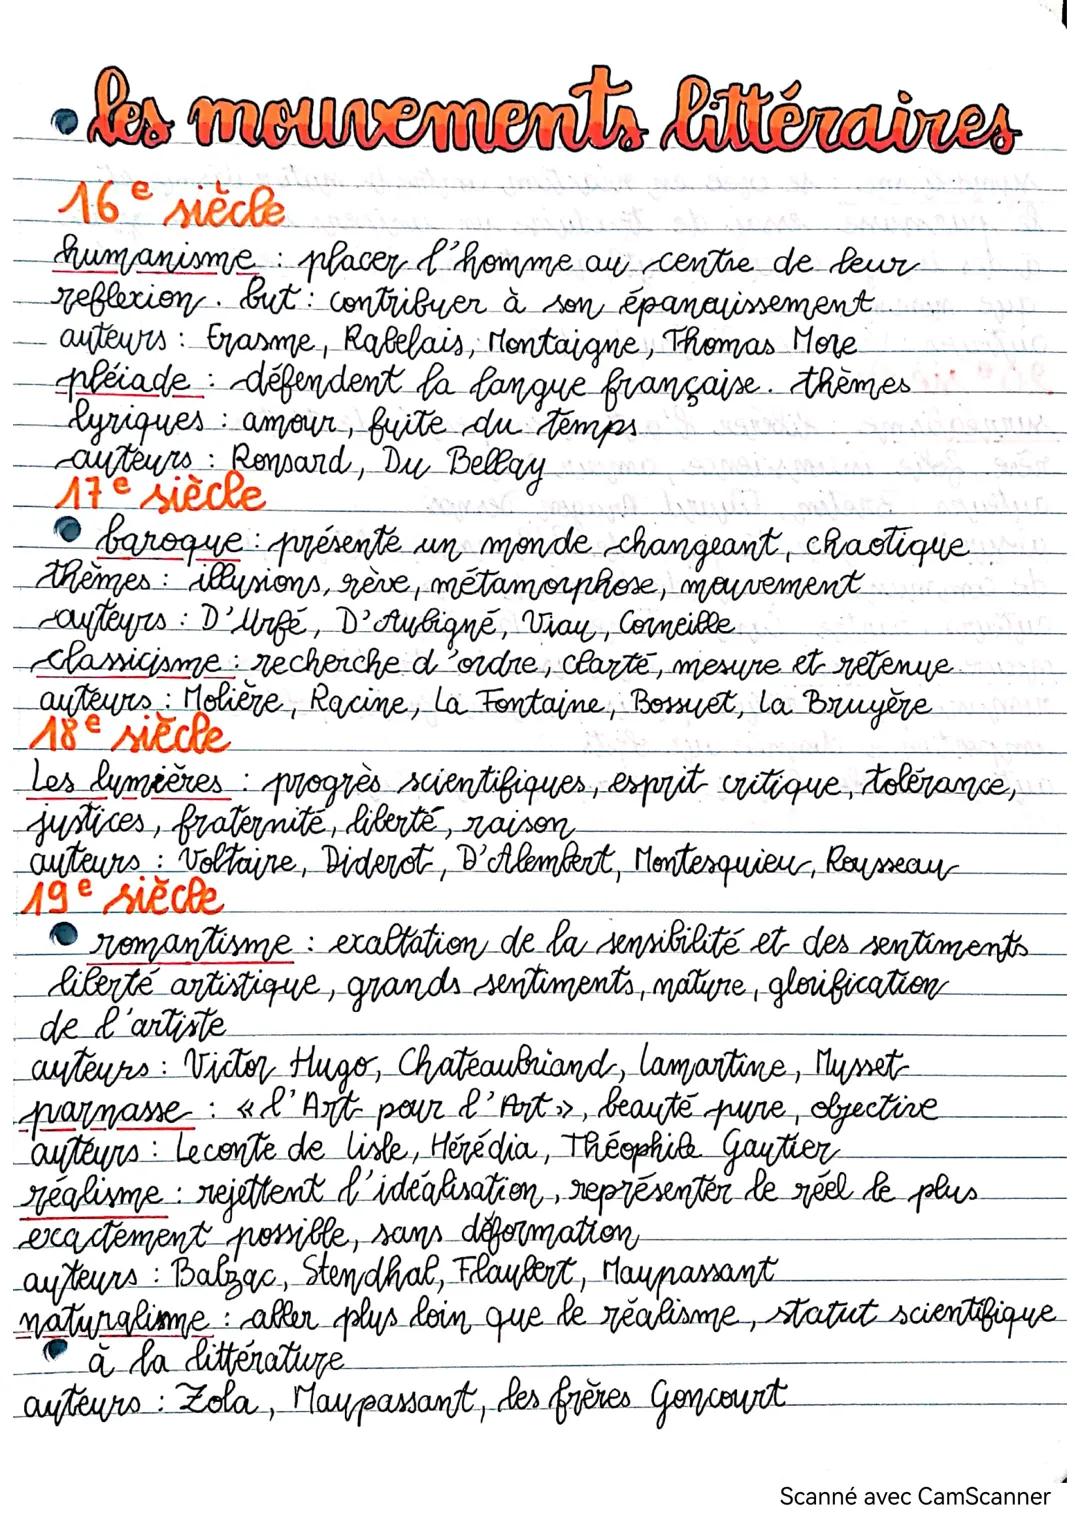 les mouvements littéraires
16e siècle
humanisme : placer l'homme au centre de leur
reflexion. but : contribuer à son épanouissement
auteurs : Erasme, Rabelais, Montaigne, Thomas More
pléiade : défendent la langue française. thèmes
lyriques : amour, fuite du temps
auteurs : Ronsard, Du Bellay
17e siècle
baroque : présente un monde changeant, chaotique
thèmes : illusions, rêve, métamorphose, mouvement
auteurs : D'Urfé, D'Aubigné, Viau, Corneille
classicisme : recherche d'ordre, clarté, mesure et retenue
auteurs : Molière, Racine, La Fontaine, Bossuet, La Bruyère
18e siècle
Les lumières : progrès scientifiques, esprit critique, tolérance,
justices, fraternité, liberté, raison
auteurs : Voltaire, Diderot, D'Alembert, Montesquieu, Rousseau
19e siècle
romantisme : exaltation de la sensibilité et des sentiments
liberté artistique, grands sentiments, nature, glorification
de l'artiste
auteurs : Victor Hugo, Chateaubriand, Lamartine, Musset
parnasse : « l'Art pour l'Art », beauté pure, objective
auteurs : Leconte de Lisle, Hérédia, Théophile Gautier
réalisme : rejettent l'idéalisation, représenter le réel le plus
exactement possible, sans déformation
auteurs : Balzac, Stendhal, Flaubert, Maupassant
naturalisme : aller plus loin que le réalisme, statut scientifique
à la littérature
auteurs : Zola, Maupassant, les frères Goncourt
Scanné avec CamScanner